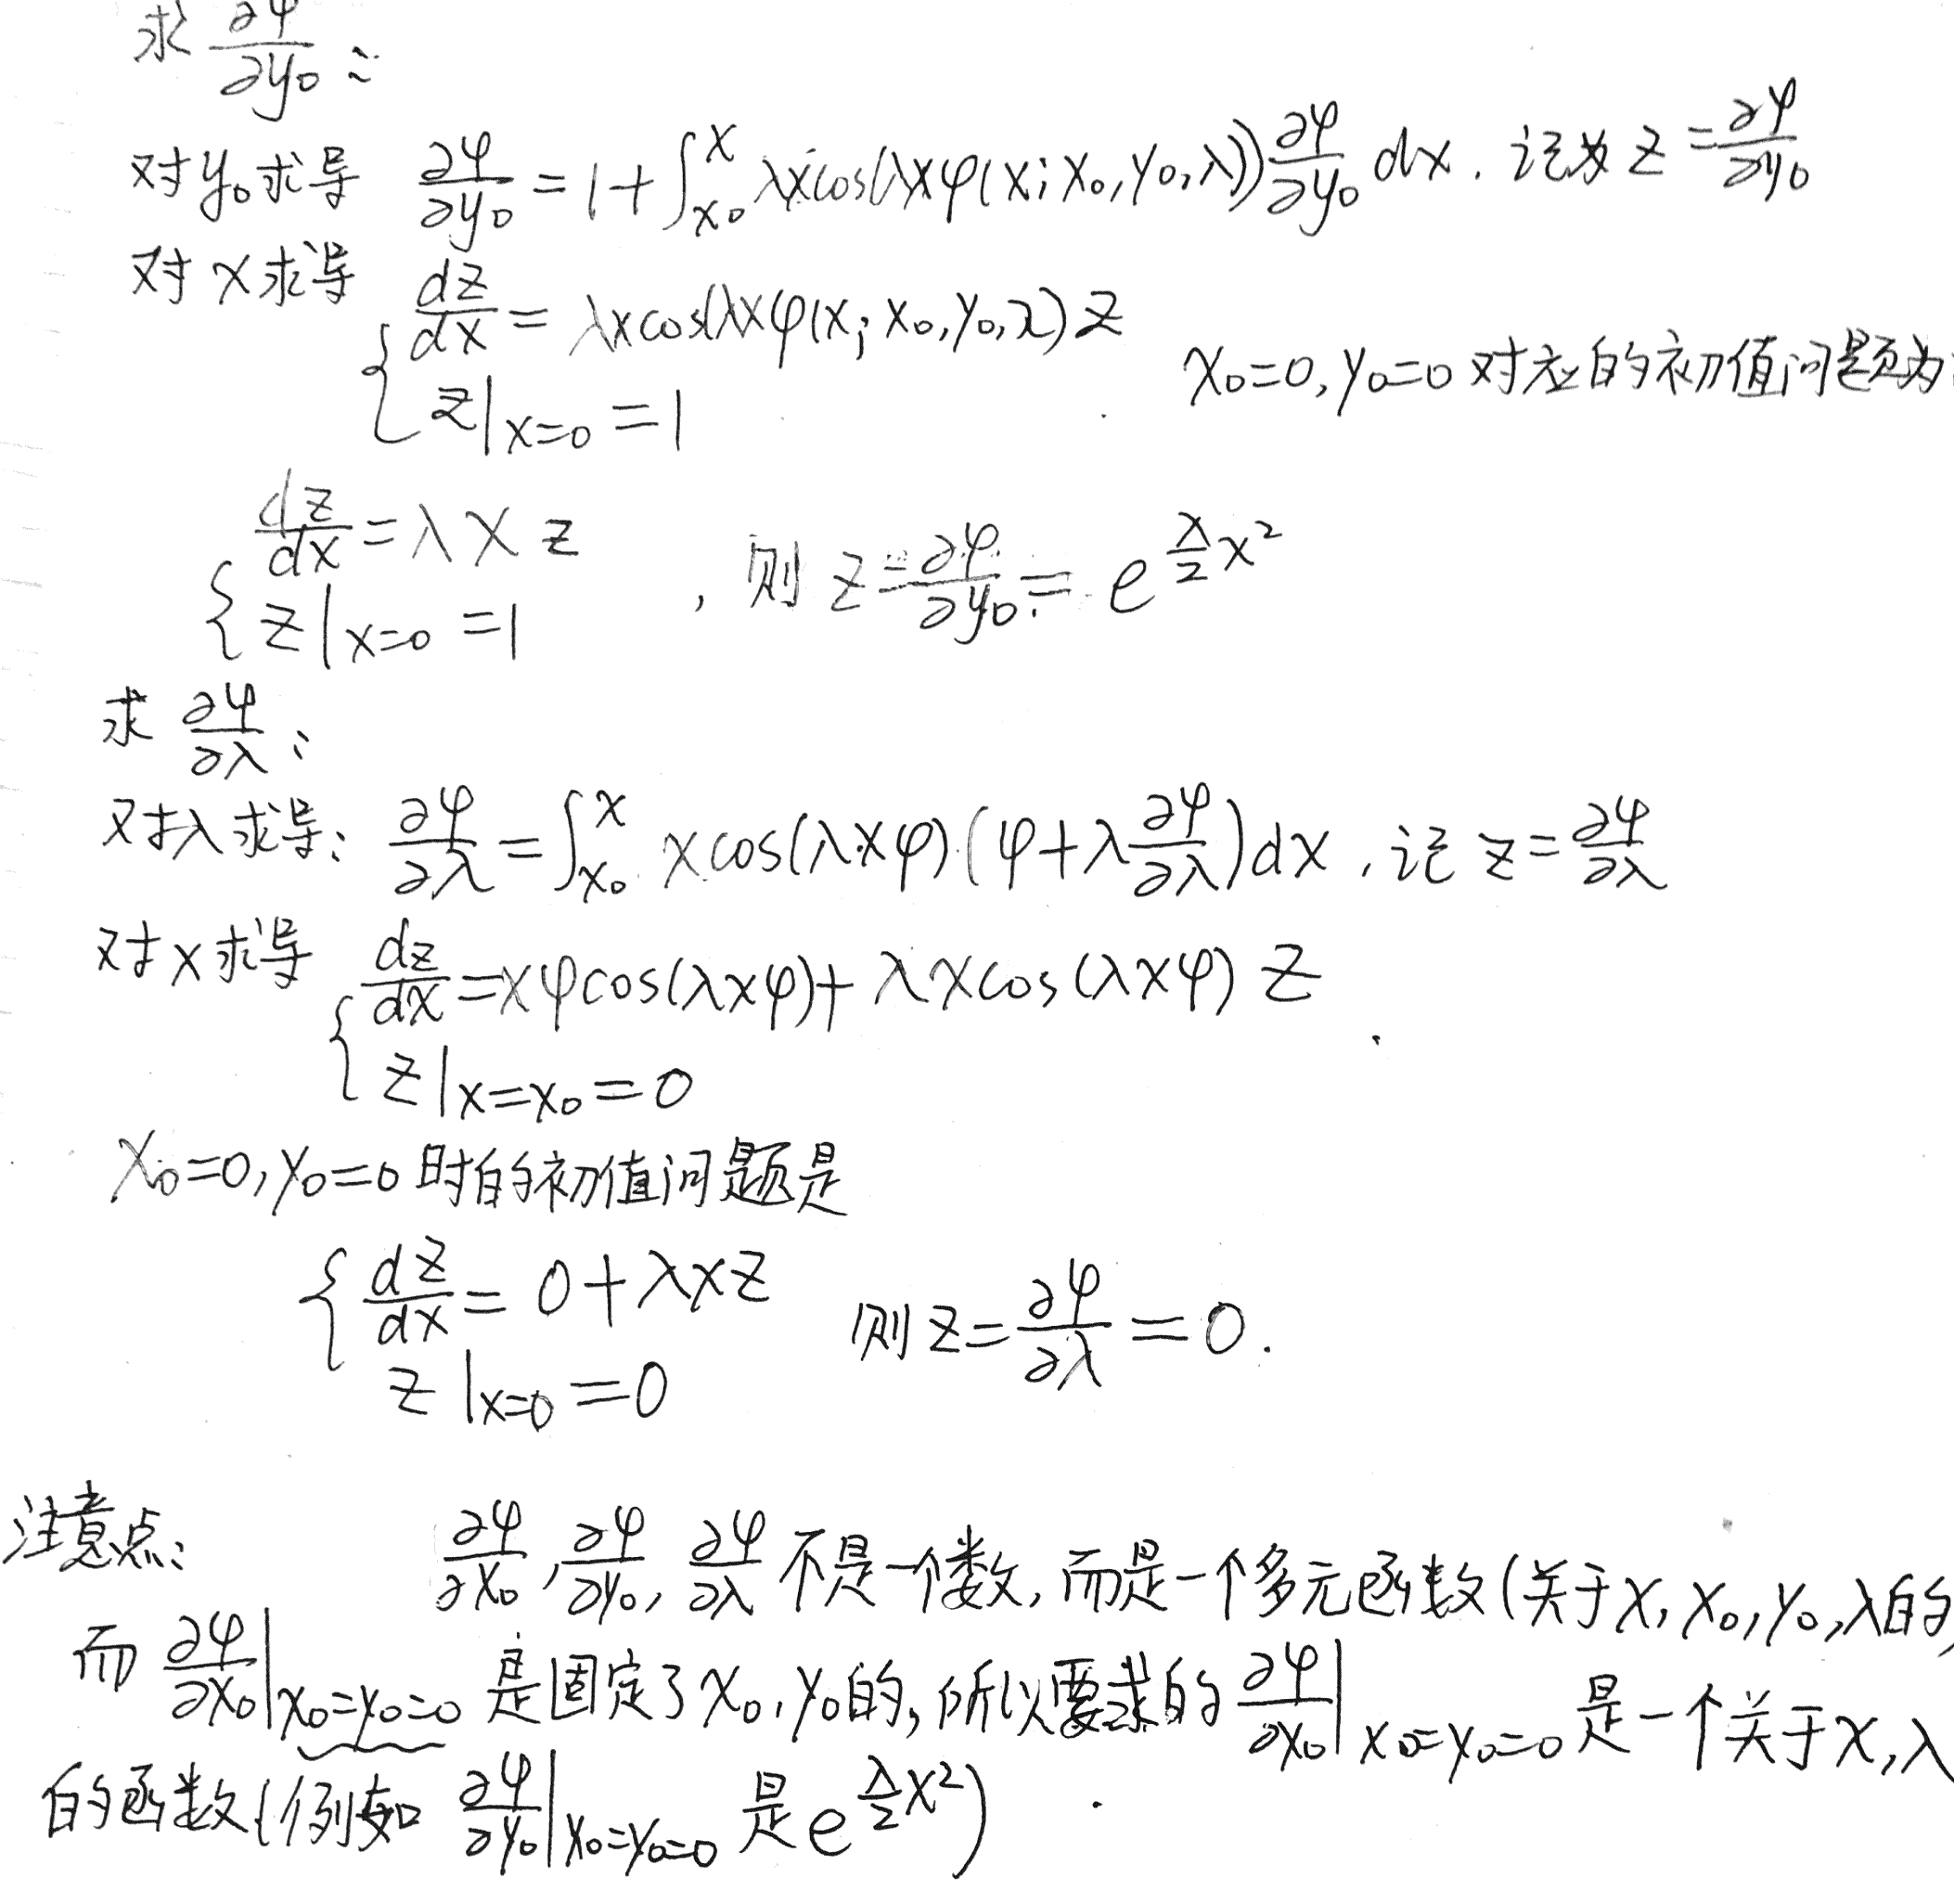 求 ∂φ/∂y₀：
对y₀求导 ∂φ/∂y₀ = 1 + ∫_{x₀}^{x} λx cos(λxφ(x; x₀, y₀, λ)) ∂φ/∂y₀ dx. 记为 z = ∂φ/∂y₀
对 x 求导 { dz/dx = λx cos(λxφ(x; x₀, y₀, λ) z
z|_{x=0} = 1 . x₀=0, y₀=0 对应的初值问题为
{ dz/dx = λ x z
z|_{x=0} = 1 , 则 z = ∂φ/∂y₀ = e^{λ/2 x²}
求 ∂φ/∂λ：
对λ求导： ∂φ/∂λ = ∫_{x₀}^{x} x cos(λxφ)·(φ + λ ∂φ/∂λ) dx , 记 z = ∂φ/∂λ
对x求导 { dz/dx = xφcos(λxφ) + λx cos(λxφ) z
z|_{x=x₀} = 0 .
x₀=0, y₀=0 时的初值问题是
{ dz/dx = 0 + λxz
z|_{x=0} = 0 则 z = ∂φ/∂λ = 0.
注意点： ∂φ/∂x₀, ∂φ/∂y₀, ∂φ/∂λ 不是一个数, 而是一个多元函数(关于x, x₀, y₀, λ的
而 ∂φ/∂x₀|_{x₀=y₀=0} 是固定了x₀, y₀的, 所以要求的 ∂φ/∂x₀|_{x₀=y₀=0} 是一个关于x, λ
的函数(例如 ∂φ/∂y₀|_{x₀=y₀=0} 是 e^{λ/2 x²}) .